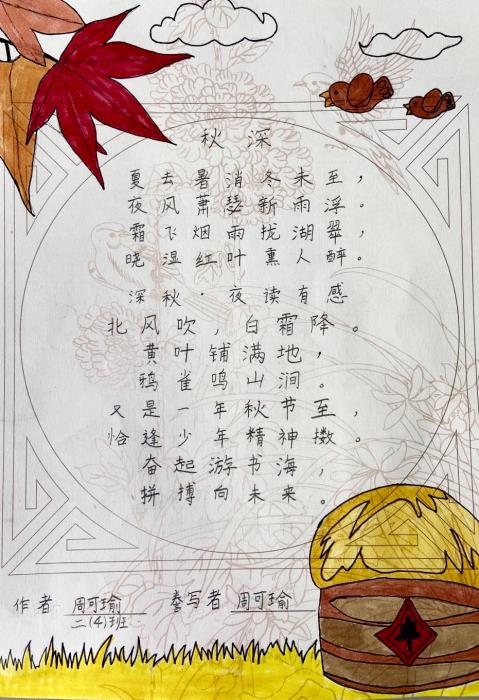 秋深
夏去暑消冬未至，
夜风萧瑟新雨浮。
霜飞烟雨拢湖翠，
晓湿红叶熏人醉。
深秋·夜读有感
北风吹，白霜降。
黄叶铺满地，
鸦雀鸣山涧。
又是一年秋节至，
恰逢少年精神擞。
奋起游书海，
拼搏向未来。
作者 周可瑜 誊写者 周可瑜
二(4)班